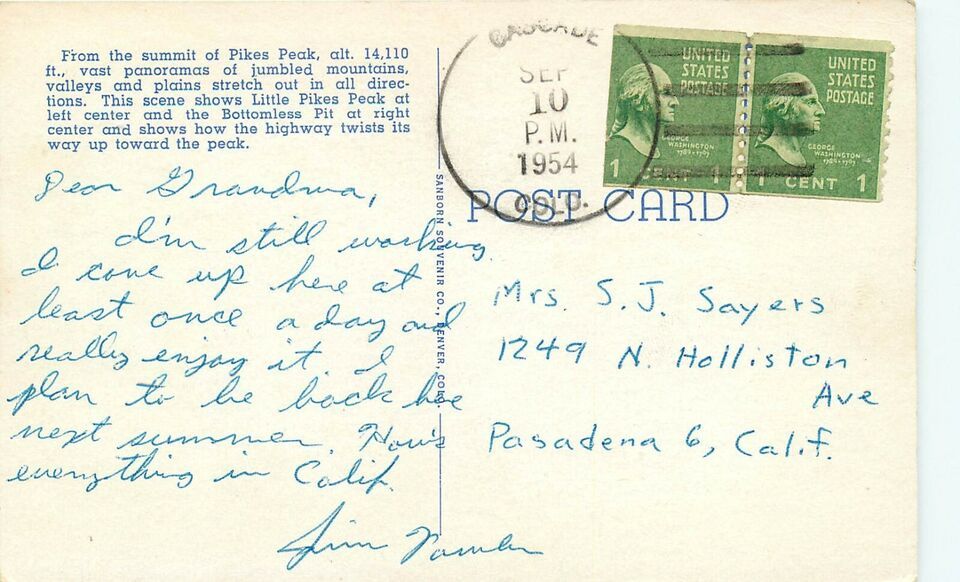 From the summit of Pikes Peak, alt. 14,110
ft., vast panoramas of jumbled mountains,
valleys and plains stretch out in all direc-
tions. This scene shows Little Pikes Peak at
left center and the Bottomless Pit at right
center and shows how the highway twists its
way up toward the peak.
Dear Grandma,
I'm still working.
I come up here at
least once a day and
really enjoy it. I
plan to be back here
next summer. How's
everything in Calif.
Jim
SANBORN SOUVENIR CO., DENVER, COLO.
CASCADE
SEP
10
P.M.
1954
COLO.
UNITED
STATES
POSTAGE
GEORGE
WASHINGTON
1789-1797
1 CENT 1
UNITED
STATES
POSTAGE
GEORGE
WASHINGTON
1789-1797
1 CENT 1
POST CARD
Mrs. S. J. Sayers
1249 N. Holliston
Ave
Pasadena 6, Calif.